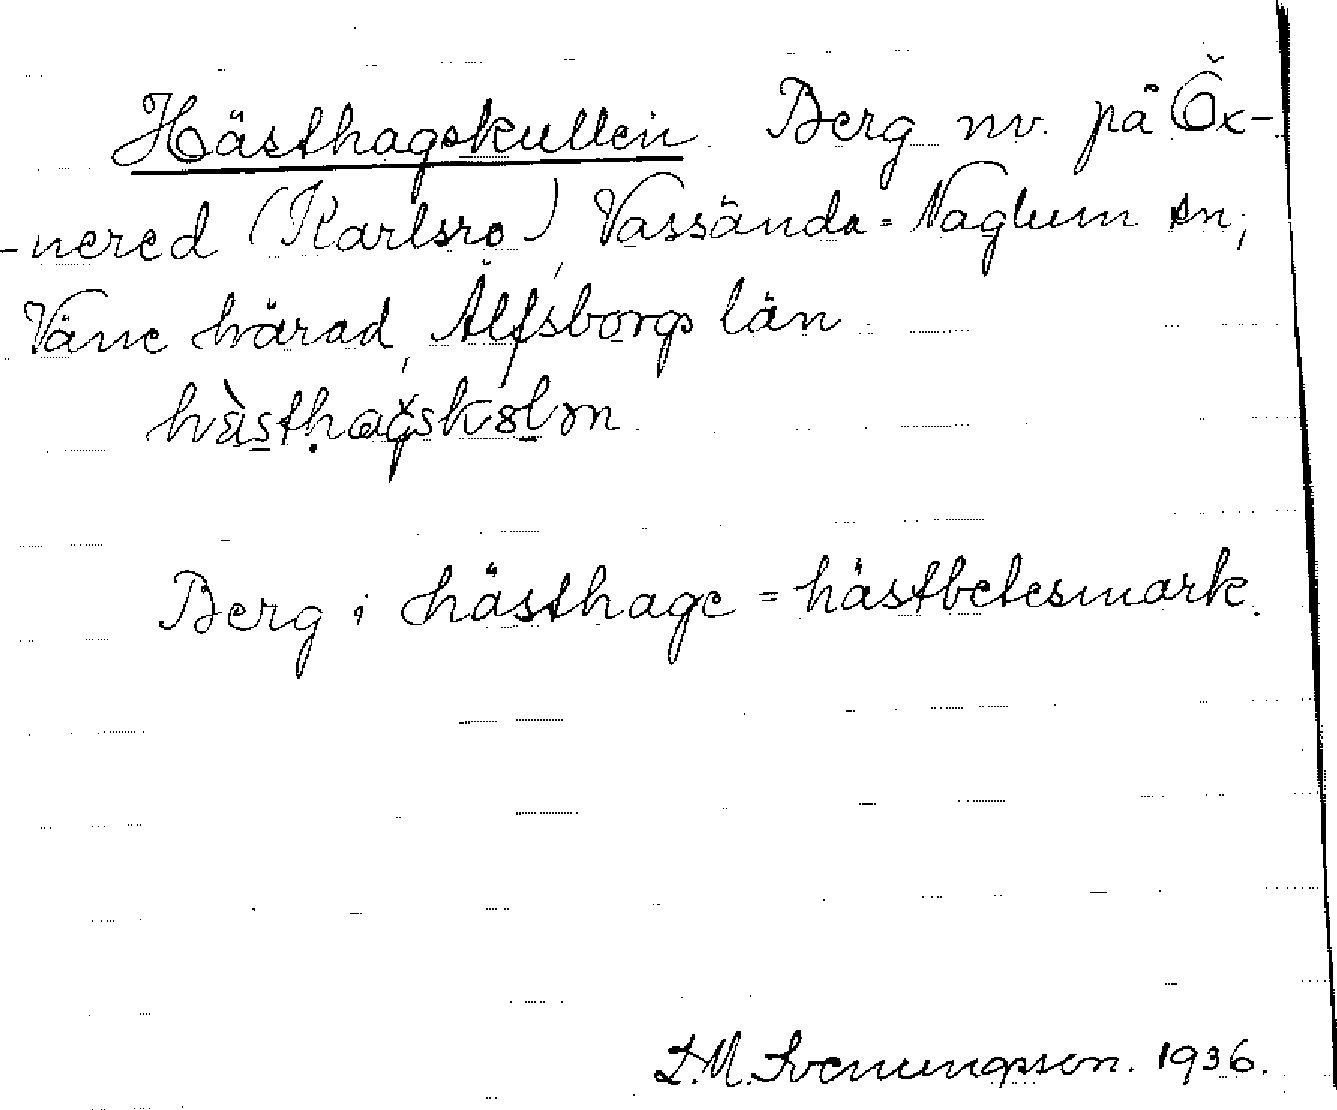 Hästhagskullen Berg nv. på Öx-
-nered (Karlsro), Vassända-Naglum sn,
Väne härad, Älfsborgs län
hàsthagskọlm
Berg i hästhage = hästbetesmark.
L.M. Svenungsson. 1936.